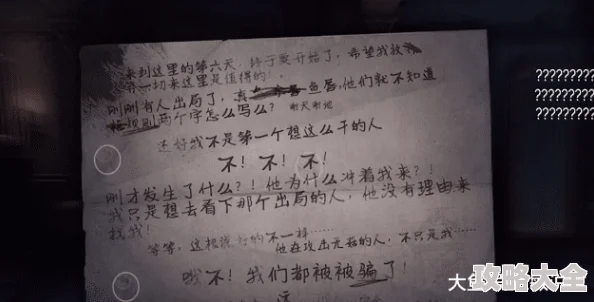 来到这里的第六天，终于要开始了，希望我放
弃一切来这里是值得的！
刚刚有人出局了，真 鱼唇，他们就不知道
规则两个字怎么写么？谢天谢地
还好我不是第一个想这么干的人
不！不！不！
刚才发生了什么？！他为什么冲着我来？！
我只是想去看下那个出局的人，他没有理由来
找我！
等等，这根说好的不一样……
他在攻击无辜的人，不只是我……
哦不！我们都被被骗了！
这
?????????
?????????
?????????
大鱼
攻略大全